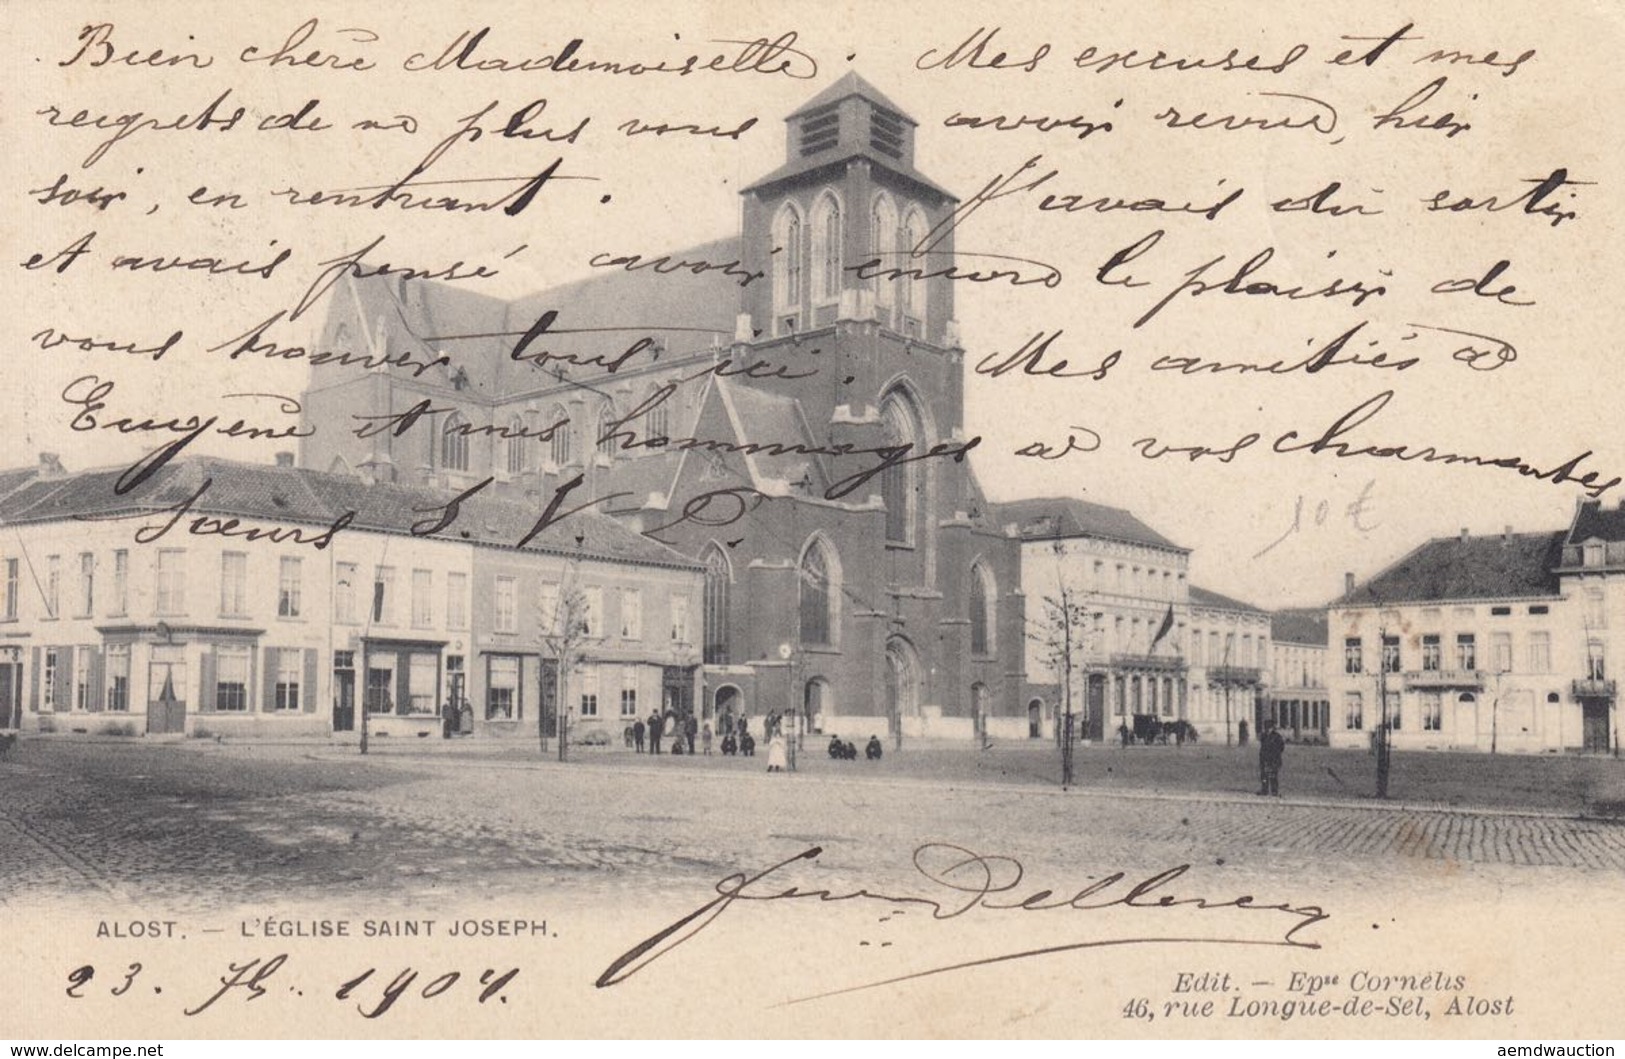 Bien chère Mademoiselle. Mes excuses et mes
regrets de ne plus vous avoir revue, hier
soir, en rentrant. J'avais dû sortir
et avais pensé avoir encore le plaisir de
vous trouver tous ici. Mes amitiés à
Eugène et mes hommages à vos charmantes
sœurs S. V. P.
10 €
ALOST. — L'ÉGLISE SAINT JOSEPH.
23. 7b.. 1904.
Edit. — Epse Cornélis
46, rue Longue-de-Sel, Alost
www.delcampe.net
aemdwauction